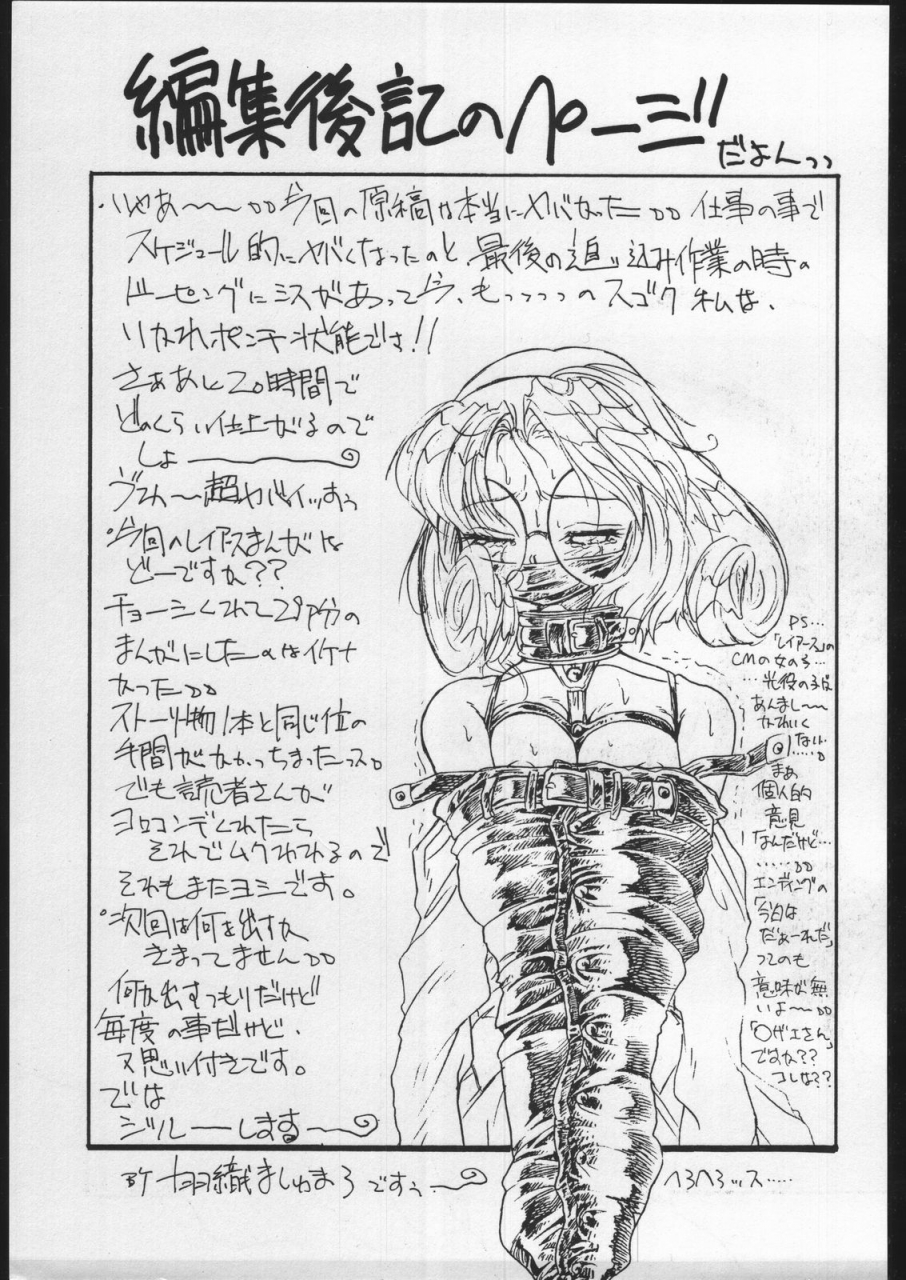 編集後記のページ
だよんっっ
・いやあ〜〜〇〇今回の原稿は本当にヤバかった〇〇仕事の事で
スケジュール的にヤバくなったのと、最後の追い込み作業の時の
ドーピングにミスがあって、もっっっっのスゴク私は、
いかれポンチ状態でさ!!
さああと20時間で
どのくらい仕上がるので
しょ――
超ヤバイッすぅ
・今回のレイアースまんがは
どーですか??
チョーシくれて29P分の
まんがにしたのはイケナ
かった〇〇
ストーリー物1本と同じ位の
手間がかかっちまったっス。
でも読者さんが
ヨロコンデくれたら
それでムクわれるので
それもまたヨシです。
・次回は何を出すか
きまってません〇〇
何か出すつもりだけど
毎度の事だけど、
又思い付きです。
では
ジルーしますー
PS…
「レイアース」の
CMの女の子…
…光役の子は
あんまし〜
かわいく
ない…
まあ
個人的
意見
なんだけど…
……〇〇
エンディングの
「今日は
だぁーれだ」
ってのも
意味が無
いよ〜〇〇
「〇ザエさん」
ですか??
コレは??
BY 羽織ましゅまろですぅ〜
へろへろッス……